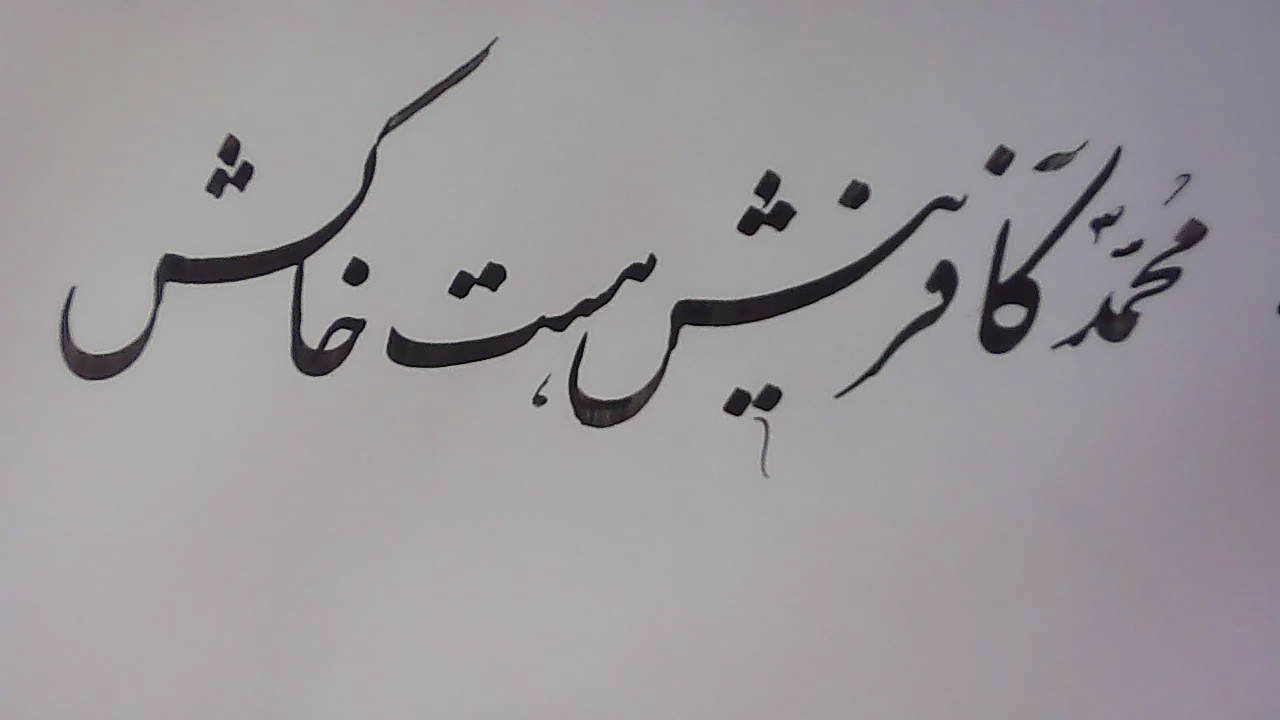 مُحَمَّد کآفرینش هست خاکش